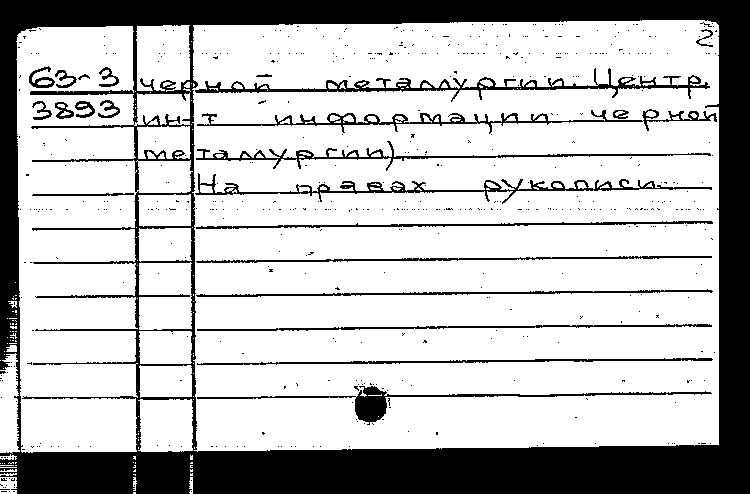 2
63-3 черной металлургии. Центр.
3893 ин-т информации черной
металлургии).
На правах рукописи.